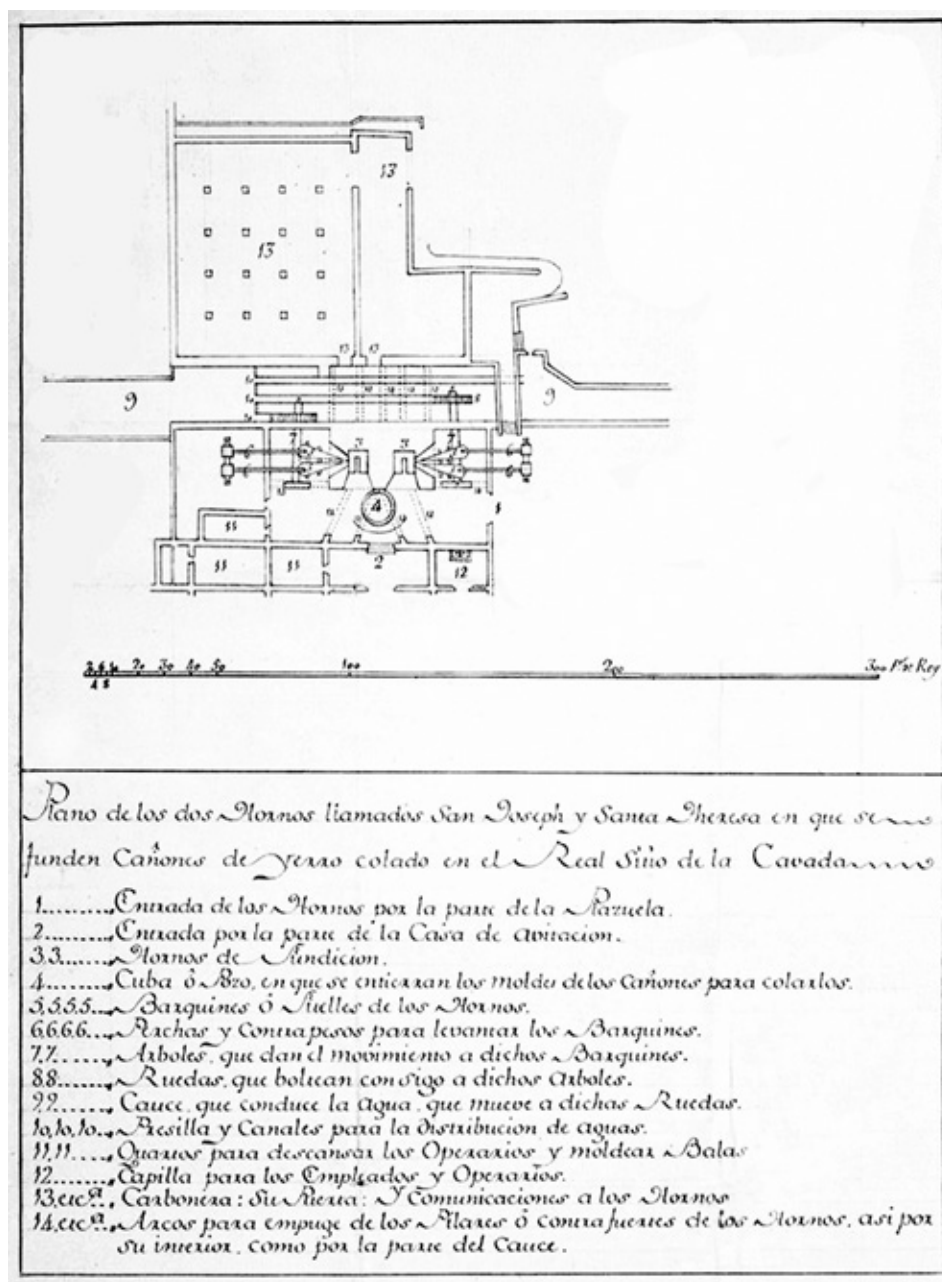 13
13
13 13
9
9
3 3
7 7
4
11
11 11
2
12
1
2 6 10 20 30 40 50 100 200 300 Ps. Rs. Reg
4 8
Plano de los dos Hornos llamados San Joseph y Santa Theresa en que se
funden Cañones de yerro colado en el Real Sitio de la Cavada
1.........Entrada de los Hornos por la parte de la Plazuela.
2.........Entrada por la parte de la Casa de avitacion.
3,3.......Hornos de Fundicion.
4.........Cuba ó Pozo, en que se entierran los moldes de los Cañones para colarlos.
5,5,5,5...Barquines ó Fuelles de los Hornos.
6,6,6,6...Archas y Contrapesos para levantar los Barquines.
7,7.......Arboles, que dan el movimiento a dichos Barquines.
8,8.......Ruedas, que boltean consigo a dichos Arboles.
9,9.......Cauce, que conduce la Agua, que mueve a dichas Ruedas.
10,10,10..Presilla y Canales para la distribucion de aguas.
11,11.....Quartos para descansar los Operarios y moldear Balas
12........Capilla para los Empleados y Operarios.
13,etcª...Carbonera: Su Puerta: Y Comunicaciones a los Hornos
14,etcª...Arcos para empuge de los Pilares ó contrafuertes de los Hornos, asi por
su interior, como por la parte del Cauce.